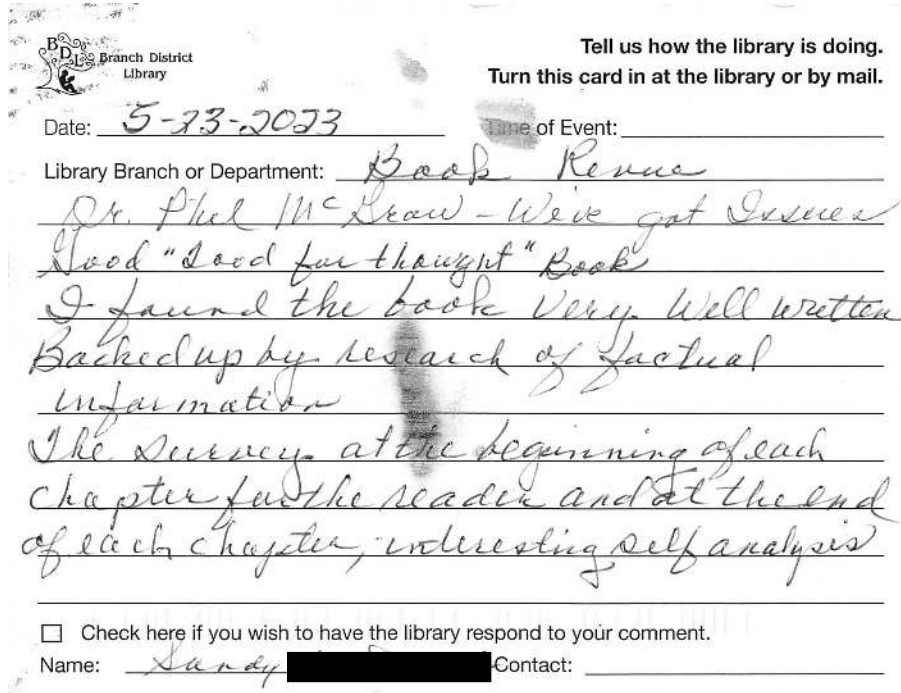 BDL Branch District
Library
Tell us how the library is doing.
Turn this card in at the library or by mail.
Date: 5-23-2023
Time of Event:
Library Branch or Department: Book Revue
Dr. Phil McGraw - We've got Issues
Good "Food for thought" Book
I found the book Very Well written
Backed up by research of factual
information
The survey at the beginning of each
chapter for the reader and at the end
of each chapter, interesting self analysis
Check here if you wish to have the library respond to your comment.
Name: Sandy
Contact: